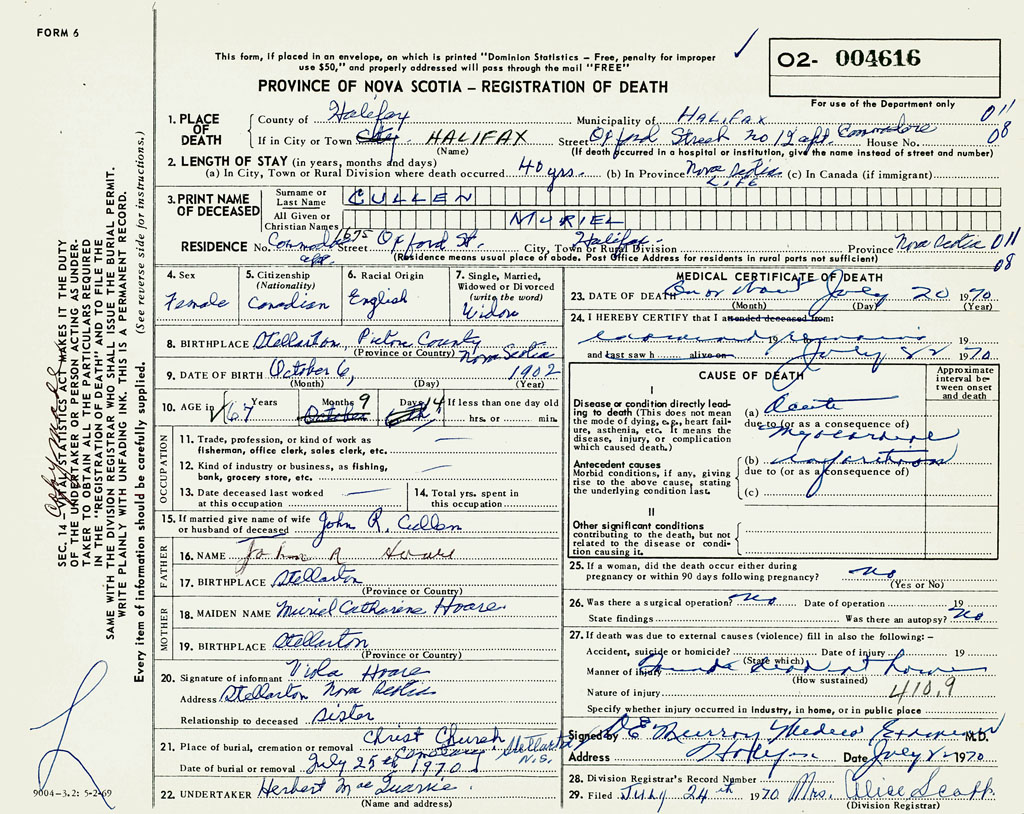 FORM 6
This form, if placed in an envelope, on which is printed "Dominion Statistics – Free, penalty for improper
use $50," and properly addressed will pass through the mail "FREE"
02- 004616
For use of the Department only
PROVINCE OF NOVA SCOTIA – REGISTRATION OF DEATH
1. PLACE OF DEATH
County of Halifax Municipality of HALIFAX 011
If in City or Town City HALIFAX Street Oxford Street No 12 apt. Commodore House No. 08
(Name) (If death occurred in a hospital or institution, give the name instead of street and number)
2. LENGTH OF STAY (in years, months and days)
(a) In City, Town or Rural Division where death occurred 40 yrs. (b) In Province Nova Scotia LIFE (c) In Canada (if immigrant)
3. PRINT NAME OF DECEASED
Surname or Last Name CULLEN
All Given or Christian Names MURIEL
RESIDENCE No. Commodore apt. 1675 Street Oxford St. City, Town or Rural Division Halifax Province Nova Scotia 011
(Residence means usual place of abode. Post Office Address for residents in rural parts not sufficient) 08
4. Sex Female
5. Citizenship (Nationality) Canadian
6. Racial Origin English
7. Single, Married, Widowed or Divorced (write the word) Widow
8. BIRTHPLACE Stellarton Pictou County Nova Scotia
(Province or Country)
9. DATE OF BIRTH October 6, 1902
(Month) (Day) (Year)
10. AGE in 67 Years Months 9 October Days 14 6th If less than one day old
hrs. or min.
OCCUPATION
11. Trade, profession, or kind of work as
fisherman, office clerk, sales clerk, etc.
12. Kind of industry or business, as fishing,
bank, grocery store, etc.
13. Date deceased last worked
at this occupation
14. Total yrs. spent in
this occupation
15. If married give name of wife
or husband of deceased John R. Cullen
FATHER
16. NAME John R Hoare
17. BIRTHPLACE Stellarton
(Province or Country)
MOTHER
18. MAIDEN NAME Muriel Catharine Hoare
19. BIRTHPLACE Stellarton
(Province or Country)
20. Signature of informant Viola Hoare
Address Stellarton Nova Scotia
Relationship to deceased Sister
21. Place of burial, cremation or removal Christ Church Cemetery Stellarton N.S.
Date of burial or removal July 25th 1970
22. UNDERTAKER Herbert MacQuarrie
(Name and address)
MEDICAL CERTIFICATE OF DEATH
23. DATE OF DEATH On or about July 20 1970
(Month) (Day) (Year)
24. I HEREBY CERTIFY that I attended deceased from:
examined remains 19
and last saw h alive on July 22 1970
CAUSE OF DEATH
Approximate interval between onset and death
I
Disease or condition directly leading to death (This does not mean the mode of dying, e.g., heart failure, asthenia, etc. It means the disease, injury, or complication which caused death.)
(a) Acute
due to (or as a consequence of)
Myocardial
Antecedent causes
Morbid conditions, if any, giving rise to the above cause, stating the underlying condition last.
(b) infarction
due to (or as a consequence of)
(c)
II
Other significant conditions
contributing to the death, but not related to the disease or condition causing it.
25. If a woman, did the death occur either during
pregnancy or within 90 days following pregnancy? no
(Yes or No)
26. Was there a surgical operation? no Date of operation 19
State findings Was there an autopsy? no
27. If death was due to external causes (violence) fill in also the following: –
Accident, suicide or homicide? Date of injury 19
(State which)
Manner of injury Found dead at home
(How sustained)
Nature of injury 410.9
Specify whether injury occurred in industry, in home, or in public place
Signed by Murray Medical Examiner M.D.
Address Halifax Date July 1970
28. Division Registrar's Record Number
29. Filed July 24th 1970 Mrs. Alice Scott
(Division Registrar)
SEC. 14 – VITAL STATISTICS ACT MAKES IT THE DUTY
OF THE UNDERTAKER OR PERSON ACTING AS UNDER-
TAKER TO OBTAIN ALL THE PARTICULARS REQUIRED
IN THE "REGISTRATION OF DEATH" AND TO FILE THE
SAME WITH THE DIVISION REGISTRAR WHO SHALL ISSUE THE BURIAL PERMIT.
WRITE PLAINLY WITH UNFADING INK. THIS IS A PERMANENT RECORD.
Every item of information should be carefully supplied. (See reverse side for instructions.)
9004-3.2: 5-2-69